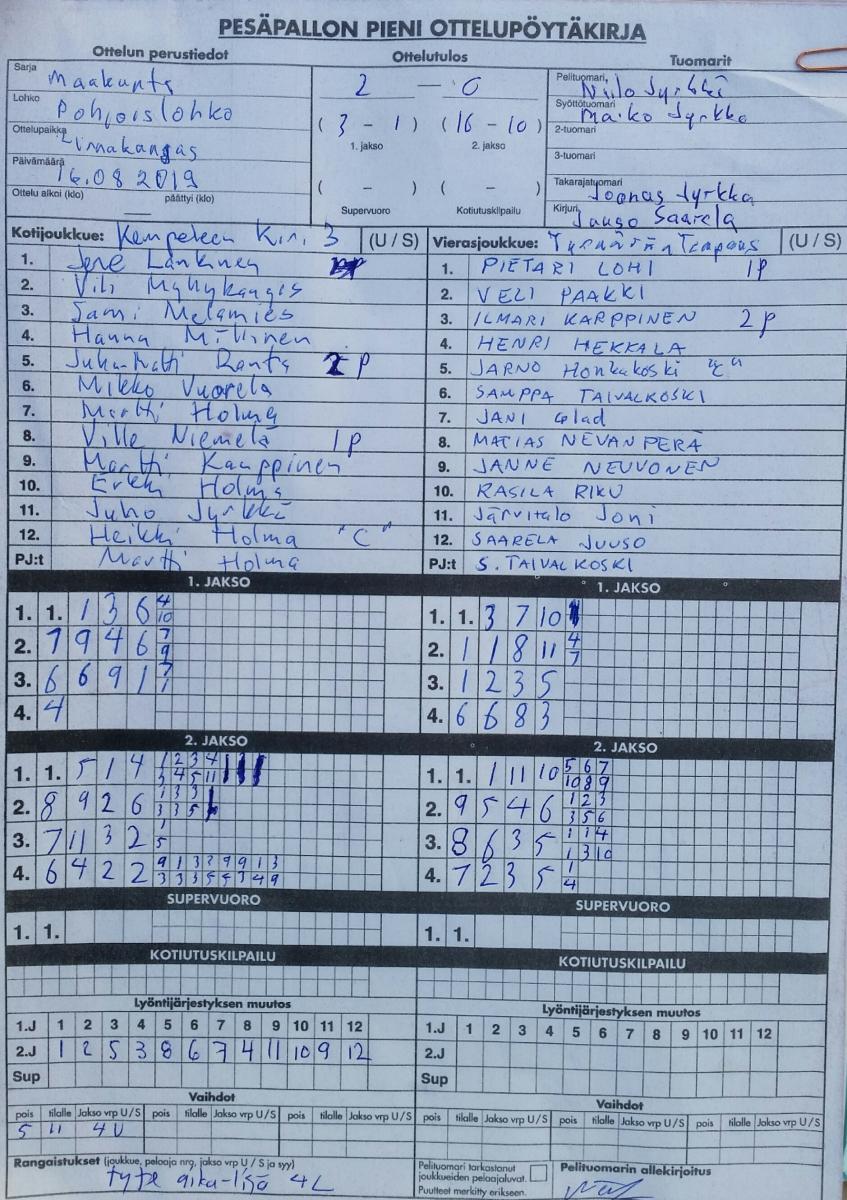 PESÄPALLON PIENI OTTELUPÖYTÄKIRJA
Ottelun perustiedot Ottelutulos Tuomarit
Sarja Maakunta
Lohko Pohjoislohko
Ottelupaikka Linnakangas
Päivämäärä 16.08 2019
Ottelu alkoi (klo) päättyi (klo)
2 — 0
( 3 - 1 ) ( 16 - 10 )
1. jakso 2. jakso
( - ) ( - )
Supervuoro Kotiutuskilpailu
Pelituomari, Niilo Jyrkkä
Syöttötuomari Maiko Jyrkkä
2-tuomari
3-tuomari
Takarajatuomari Joonas Jyrkkä
Kirjuri Juuso Saarela
Kotijoukkue: Kempeleen Kiri 3 (U / S)
1. Jere Lankinen
2. Vili
3. Sami Melamies
4. Hanna
5. Juha-Matti Ranta 2 P
6. Mikko Vuorela
7. Martti Holma
8. Ville Niemelä 1P
9. Martti Kauppinen
10. Erkki Holma
11. Juho Jyrkkä
12. Heikki Holma "C"
PJ:t Martti Holma
Vierasjoukkue: Tyrnävän Tempaus (U / S)
1. PIETARI LOHI 1P
2. VELI PAAKKI
3. ILMARI KARPPINEN 2P
4. HENRI HEKKALA
5. JARNO Honkakoski "C"
6. SAMPPA TAIVALKOSKI
7. JANI Glad
8. MATIAS NEVANPERÄ
9. JANNE NEUVONEN
10. RASILA RIKU
11. Järvitalo Joni
12. SAARELA JUUSO
PJ:t S. TAIVALKOSKI
1. JAKSO
1. 1. 1 3 6 4 10
2. 7 9 4 6 7 9
3. 6 6 9 1 7
4. 4
1. JAKSO
1. 1. 3 7 10
2. 1 1 8 11 4 7
3. 1 2 3 5
4. 6 6 8 3
2. JAKSO
1. 1. 5 1 4 1 2 3 4
3 4 5 11
2. 8 9 2 6 1 3 3
3 3 5
3. 7 11 3 2 1
5
4. 6 4 2 2 9 1 3 2 9 9 1 3
3 3 3 5 5 3 4 9
2. JAKSO
1. 1. 1 11 10 5 6 7
10 8 9
2. 9 5 4 6 1 2 3
3 5 6
3. 8 6 3 5 1 1 4
1 3 10
4. 7 2 3 5 1
4
SUPERVUORO
1. 1.
SUPERVUORO
1. 1.
KOTIUTUSKILPAILU
KOTIUTUSKILPAILU
Lyöntijärjestyksen muutos
1.J 1 2 3 4 5 6 7 8 9 10 11 12
2.J 1 2 5 3 8 6 7 4 11 10 9 12
Sup
Lyöntijärjestyksen muutos
1.J 1 2 3 4 5 6 7 8 9 10 11 12
2.J
Sup
Vaihdot
pois tilalle Jakso vrp U/S pois tilalle Jakso vrp U/S pois tilalle Jakso vrp U/S
5 11 4U
Vaihdot
pois tilalle Jakso vrp U/S pois tilalle Jakso vrp U/S pois tilalle Jakso vrp U/S
Rangaistukset (joukkue, pelaaja nrg, jakso vrp U / S ja syy)
aika-lisä 4L
Pelituomari tarkastanut
joukkueiden pelaajaluvat.
Puutteet merkitty erikseen.
Pelituomarin allekirjoitus